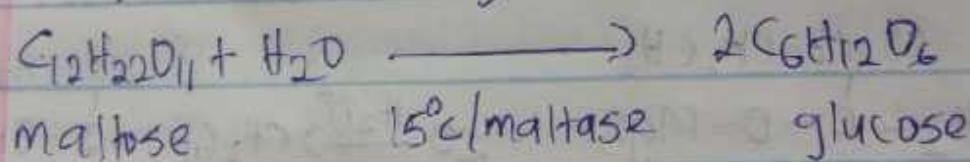 C₁₂H₂₂O₁₁ + H₂O ⟶ 2C₆H₁₂O₆
maltose 15°c/maltase glucose